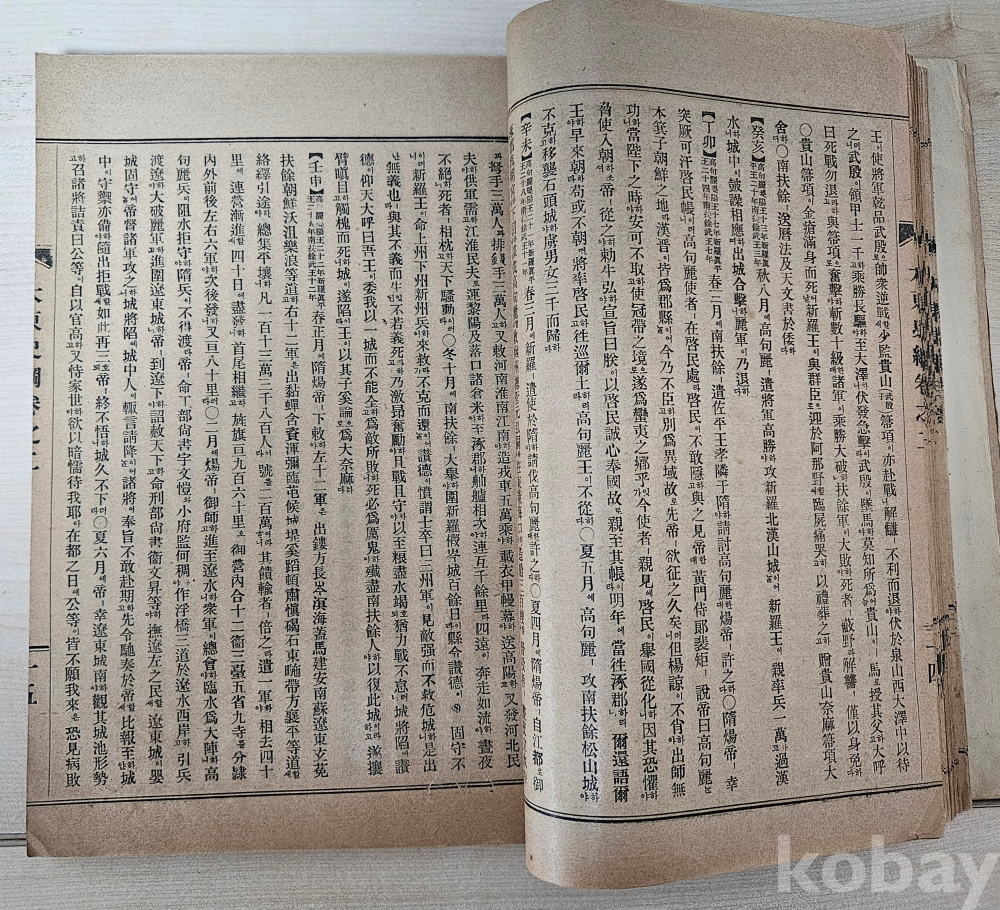 王이使將軍乾品武殷으로帥衆逆戰할새少監貴山子武殷箒項이亦赴戰이러니解讎이不利而退하야伏於泉山西大澤中以待
之러니武殷이領甲士一千하고乘勝長驅하야至大澤하니伏發急擊이라武殷이墜馬하야莫知所爲어늘貴山이以馬로授其父하고大呼
曰死戰勿退라하고與箒項으로奮擊하야斬數十級한대諸軍이乘勝大破하니扶餘軍이大敗하야死者ㅣ蔽野라解讎ㅣ僅以身免하다
○貴山箒項이金瘡滿身而死어늘新羅王이與群臣으로迎於阿那野할새臨屍痛哭하고以禮葬之하고贈貴山奈麻箒項大
舍하다○南扶餘ㅣ送曆法及天文書於倭하다
【癸亥】秋八月에高句麗ㅣ遣將軍高勝하야攻新羅北漢山城이어늘新羅王이親率兵一萬하고過漢
水하니城中이皷譟相應하야出城合擊하니麗軍이乃退하다
【丁卯】春二月에南扶餘ㅣ遣佐平王孝隣于隋하야請討高句麗한대煬帝ㅣ許之하다○隋煬帝ㅣ幸
突厥可汗啓民帳이러니高句麗使者ㅣ在啓民處라啓民이不敢隱하고與之見帝한대黃門侍郞裴矩ㅣ說帝曰高句麗는
本箕子朝鮮之地라漢晋이皆爲郡縣이어늘今乃不臣하고別爲異域故로先帝ㅣ欲征之久矣나但楊諒이不肖하야出師無
功하니當陛下之時하야安可不取하고使冠帶之境으로遂爲蠻夷之鄕乎잇가今使者ㅣ親見啓民이擧國從化하니因其恐懼하야
脅使入朝하소서帝ㅣ從之하야勅牛弘하야宣旨曰朕이以啓民誠心奉國故로親至其帳이라明年에當往涿郡하리니爾還語爾
王하야早來朝하라苟或不朝면將率啓民하고往巡爾土하리라高句麗王이不從하다○夏五月에高句麗ㅣ攻南扶餘松山城하야
不克하고移襲石頭城하야虜男女三千而歸하다
【辛未】春三月에新羅ㅣ遣使於隋하야請伐高句麗한대許之하다○夏四月에隋煬帝ㅣ自江都로御
弩手三萬人과排鑹手三萬人하고又敕河南淮南江南하야造戎車五萬乘하야載衣甲幔幕하야送高陽하고又發河北民
夫하야供軍需하고江淮民夫로運黎陽及落口諸倉米하야至涿郡하니舳艫相次하야連亙千餘里라四遠이奔走如流하야晝夜
不絕하니死者ㅣ相枕하고天下騷動이러라○冬十月에南扶餘ㅣ大擧圍新羅椵岑城百餘日이라縣令讃德이固守不
이러니新羅王이命上州下州新州兵하야來救라가不克而還이어늘讃德이憤謂士卒曰三州軍이見敵强而不救危城하니是出
無義也라與其不義而生으론不若義死라하고乃激昂奮勵하야且戰且守하야以至根盡水竭호대猶力戰不怠러니城將陷에讃
德이仰天大呼曰吾王이委我以一城而不能全하고爲敵所敗하니死必爲厲鬼하야殲盡南扶餘人하야以復此城하리라遂攘
臂瞋目하고觸槐而死하니城이遂陷이라王이以其子奚論으로爲大奈麻하다
【壬申】春正月에隋煬帝ㅣ下敕하야左十二軍은出鏤方長岑溟海蓋馬建安南蘇遼東玄菟
扶餘朝鮮沃沮樂浪等道하고右十二軍은出黏蟬含資渾彌臨屯候城堤奚蹋頓肅愼碣石東暆帶方襄平等道할새
絡繹引途하야總集平壤하니凡一百十三萬三千八百人이라號를二百萬이라하니其饋輸者ㅣ倍之라遣一軍하야相去四十
里에連營漸進할새四十日에盡發하니首尾相繼하고旌旗亘九百六十里오御營內合十二衞三臺五省九寺를分隷
內外前後左右六軍하야次後發하니又亘八十里라○二月에煬帝ㅣ御師하고進至遼水하니衆軍이總會하야臨水爲大陣하니高
句麗兵이阻水拒守라隋兵이不得渡라帝ㅣ命工部尙書宇文愷와小府監何稠하야作浮橋三道於遼水西岸하고引兵
渡遼하야大破麗軍하고進圍遼東城하니帝ㅣ到遼하야下詔赦天下하고命刑部尙書衞文昇等하야撫遼左之民할새遼東城이嬰
城固守어늘帝ㅣ督諸軍攻之하니城將陷에城中人이輒言請降이어늘諸將이奉旨不敢赴期하고先令馳奏於帝할새比報至하야城
中이守禦亦備하야隨出拒戰할새如此再三호대帝ㅣ終不悟하니城久不下러라○夏六月에帝ㅣ幸遼東城南하야觀其城池形勢
하고召諸將詰責曰公等이自以官高하고又恃家世하야欲以暗懦待我耶아在都之日에公等이皆不願我來은恐見病敗